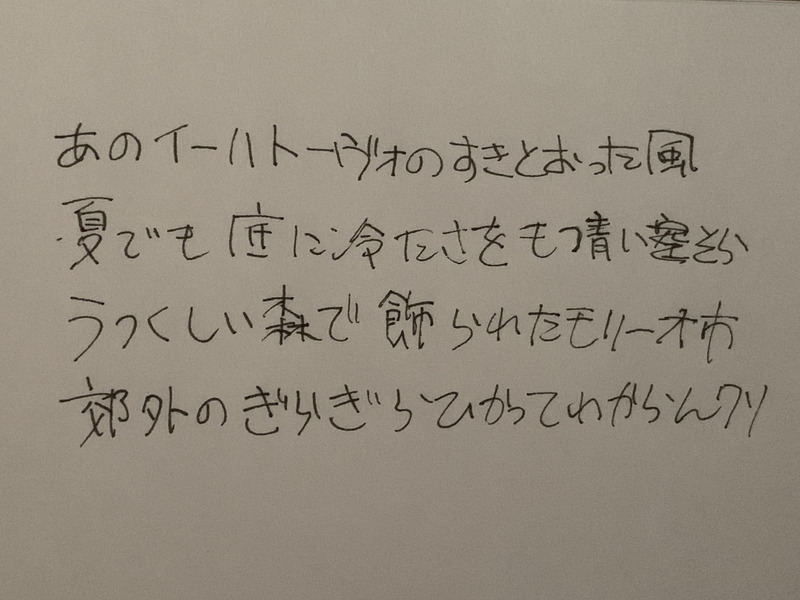 あのイーハトーヴォのすきとおった風
夏でも底に冷たさをもつ青い そら
うつくしい森で飾られたモリーオ市
郊外のぎらぎらひかってわからん